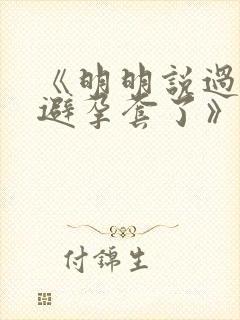 《明明説過
避孕套了》
付錦生